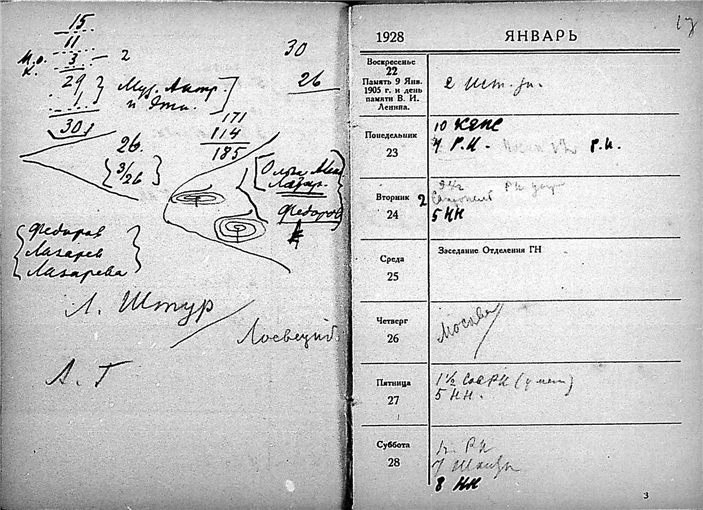 15
11
М.о. 3 - 2
К.
29
1
30
Мур. Антр.
и Этн.
30
26
26
3/26
171
114
185
Ольга
Лазар.
Федоров
Федоров
Лазарев
Лазарева
Л. Штур
А. Г
1928 ЯНВАРЬ
Воскресенье
22
Память 9 Янв.
1905 г. и день
памяти В. И.
Ленина.
2 Ист.
Понедельник
23
10 КЕПС
Р.И. Р.И.
Вторник
24
9 1/2 РИ
2
5 НН
Среда
25
Заседание Отделения ГН
Четверг
26
Москва
Пятница
27
1 1/2 Сов РИ
5 НН.
Суббота
28
РИ
7
8 НН
3